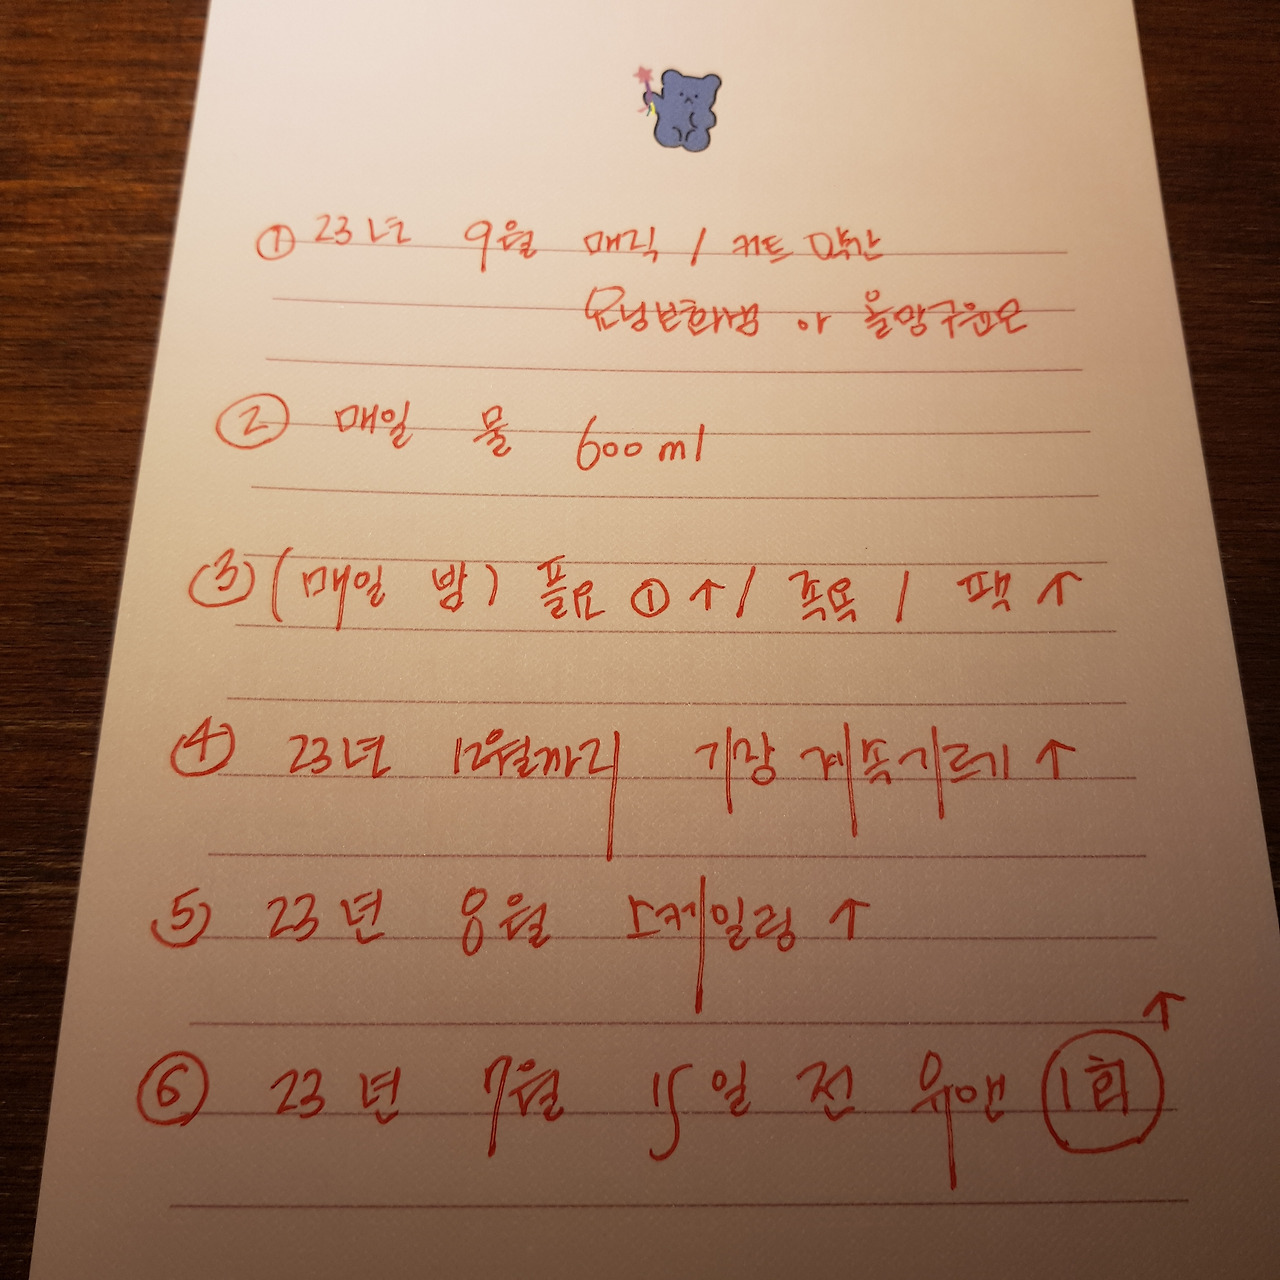 ① 23년 9월 매직 / 커트 약간
② 매일 물 600ml
③ (매일 밤) 필요 ① ↑ / 족욕 / 팩 ↑
④ 23년 12월까지 기장 계속기르기 ↑
⑤ 23년 8월 스케일링 ↑
⑥ 23년 7월 15일 전 유앤 1회 ↑